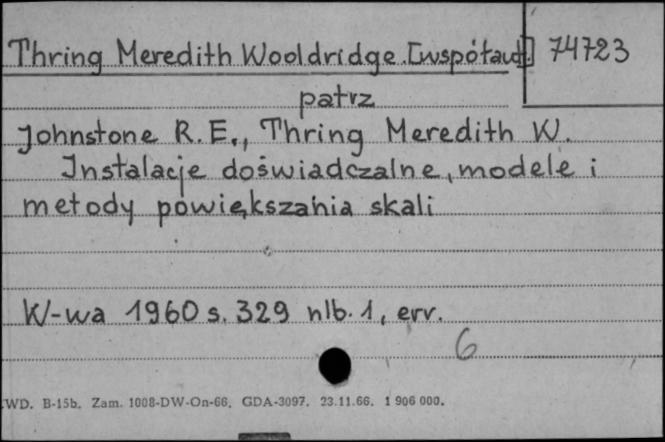 Thring Meredith Wooldridge [współaut.] 74723
patrz
Johnstone R.E., Thring Meredith W.
Instalacje doświadczalne, modele i
metody powiększania skali
W-wa 1960 s. 329 nlb. 1, err.
6
WD. B-15b. Zam. 1008-DW-On-66. GDA-3097. 23.11.66. 1 906 000.